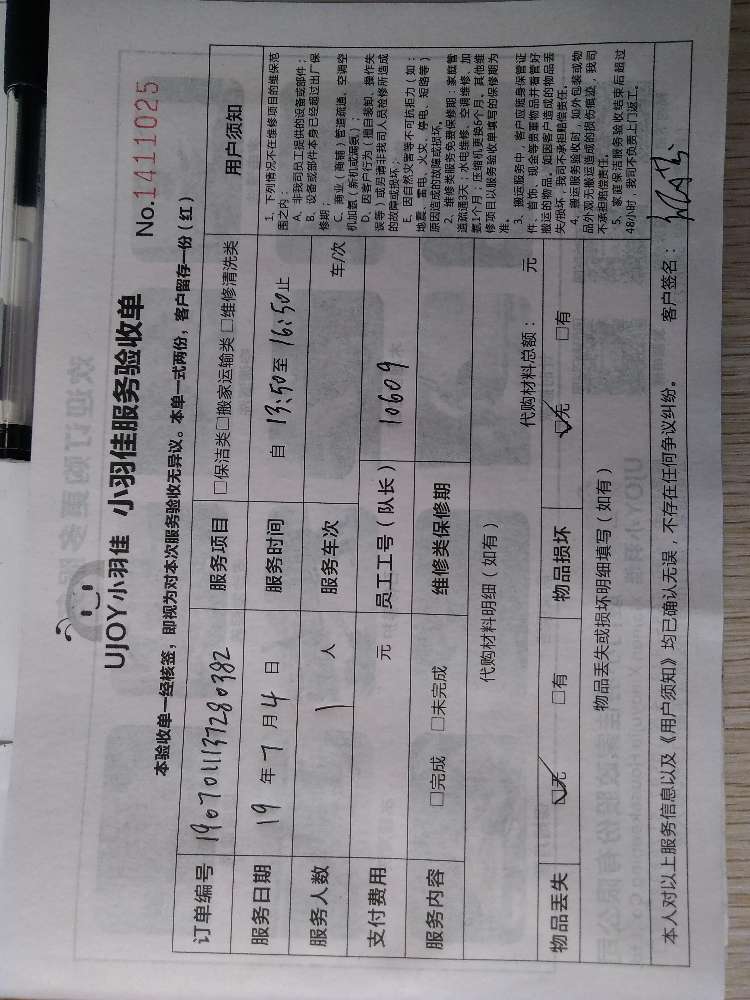 UJOY小羽佳 小羽佳服务验收单
No.1411025
本验收单一经核签，即视为对本次服务验收无异议。本单一式两份，客户留存一份（红）
订单编号 1907011137280382 服务项目 □保洁类□搬家运输类 □维修清洗类
服务日期 19 年 7 月 4 日 服务时间 自 13:50 至 16:50 止
服务人数 1 人 服务车次 车/次
支付费用 元 员工工号（队长） 10609
服务内容 □完成 □未完成 维修类保修期
代购材料明细（如有） 代购材料总额： 元
物品丢失 ☑无 □有 物品损坏 ☑无 □有
物品丢失或损坏明细填写（如有）
用户须知
1、下列情况不在维修项目的维保范
围之内：
A、非我司员工提供的设备或部件；
B、设备或部件本身已经超过出厂保
修期；
C、商业（商铺）管道疏通、空调空
机加氨（新机或漏氨）；
D、因客户行为（擅自装卸、操作失
误等）或另请非我司人员检修所造成
的故障或损坏；
E、因自然灾害等不可抗拒力（如：
地震、雷电、火灾、停电、短路等）
原因造成的故障或损坏。
2、维修类服务免费保修期：家庭管
道疏通3天；水电维修、空调维修、加
氨1个月；压缩机更换6个月。其他维
修项目以服务验收单填写的保修期为
准。
3、搬运服务中，客户应随身保管证
件、首饰、现金等贵重物品并看管好
搬运的物品，如因客户造成的物品丢
失/损坏，我司不承担赔偿责任。
4、搬运服务验收时，如外包装或物
品外观无搬运造成的损伤痕迹，我司
不承担赔偿责任。
5、家庭保洁服务验收结束后超过
48小时，我司不负责上门返工。
本人对以上服务信息以及《用户须知》均已确认无误，不存在任何争议纠纷。 客户签名：